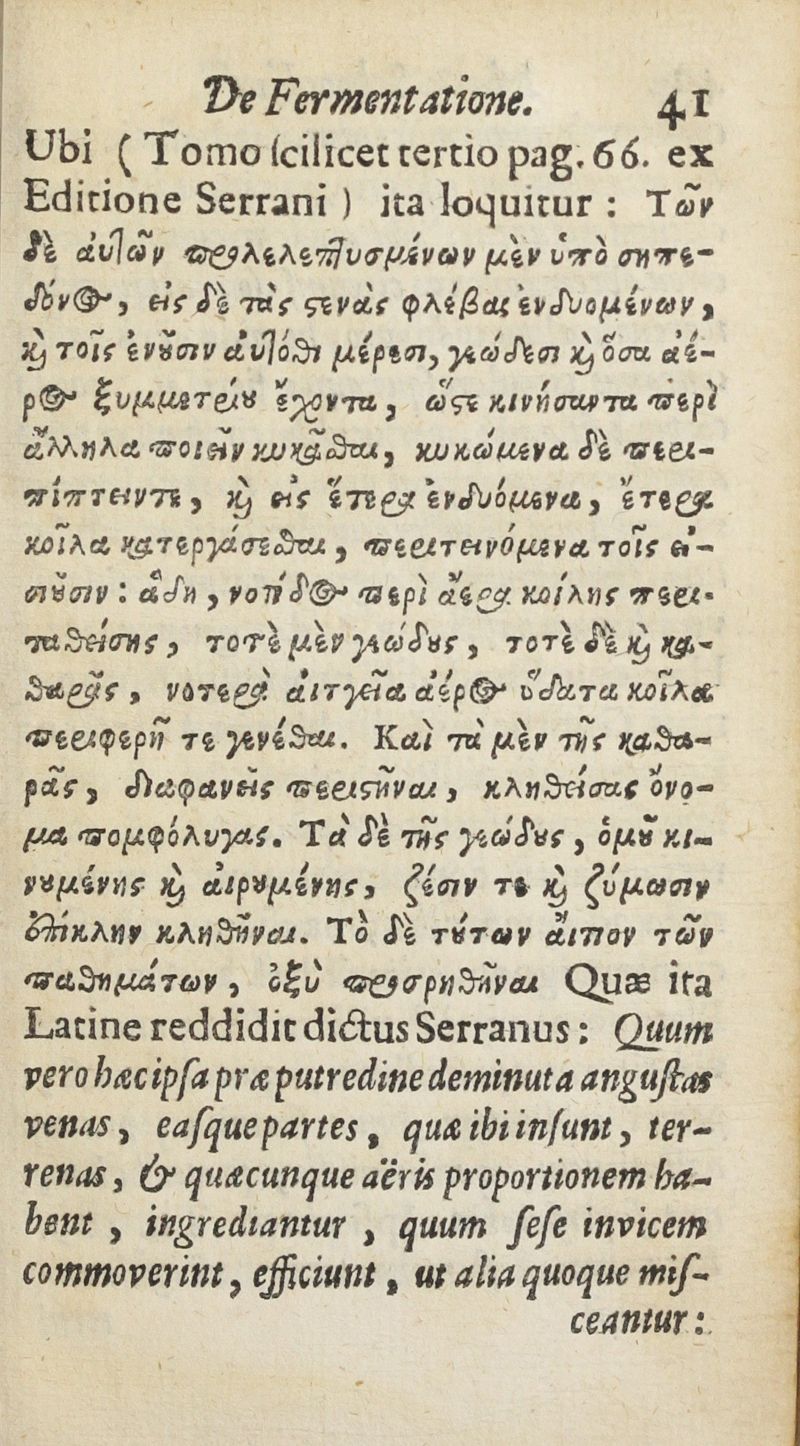 De Fermentatione. 41
Ubi ( Tomo ſcilicet tertio pag. 66. ex
Editione Serrani ) ita loquitur : Τῶν
δὲ ἀυτῶν προλελεπτυσμένων μὲν ὑπὸ σηπε-
δόνος, εἰς δὲ τὰς στενὰς φλέβας ἐνδυομένων,
καὶ τοῖς ἐνοῦσιν ἀυτόθι μέρεσι, γεώδεσι καὶ ὅσα ἀέ-
ρος ξυμμετρίου ἔχοντα, ὥστε κινήσαντα περὶ
ἄλληλα ποιεῖν κυκᾶσθαι, κυκώμενα δὲ περι-
πίπτειντε, καὶ εἰς ἕτερα ἐνδυόμενα, ἕτερα
κοῖλα κατεργάσεσθαι, περιτεινόμενα τοῖς εἰ-
σιοῦσιν : ἅδη, νοτίδος περὶ ἀέρα κοίλης περι-
ταθείσης, τοτὲ μὲν γεώδους, τοτὲ δὲ καὶ κα-
θαρᾶς, νοτερὰ ἀιτγεῖα ἀέρος ὕδατα κοῖλα
περιφερῆ τε γενέσθαι. Καὶ τὰ μὲν τῆς καθα-
ρᾶς, διαφανεῖς περιστῆναι, κληθείσας ὄνο-
μα πομφόλυγας. Τὰ δὲ τῆς γεώδους, ὁμοῦ κι-
νουμένης καὶ ἀιρουμένης, ζέσιν τε καὶ ζύμωσιν
ἐπίκλην κληθῆναι. Τὸ δὲ τούτων ἄιτιον τῶν
παθημάτων, ὀξὺ προσρηθῆναι Quæ ita
Latine reddidit dictus Serranus : Quum
vero hæc ipſa præ putredine deminuta anguſtas
venas, eaſque partes, quæ ibi inſunt, ter-
renas, & quæcunque aëris proportionem ha-
bent, ingrediantur, quum ſeſe invicem
commoverint, efficiunt, ut alia quoque miſ-
ceantur :